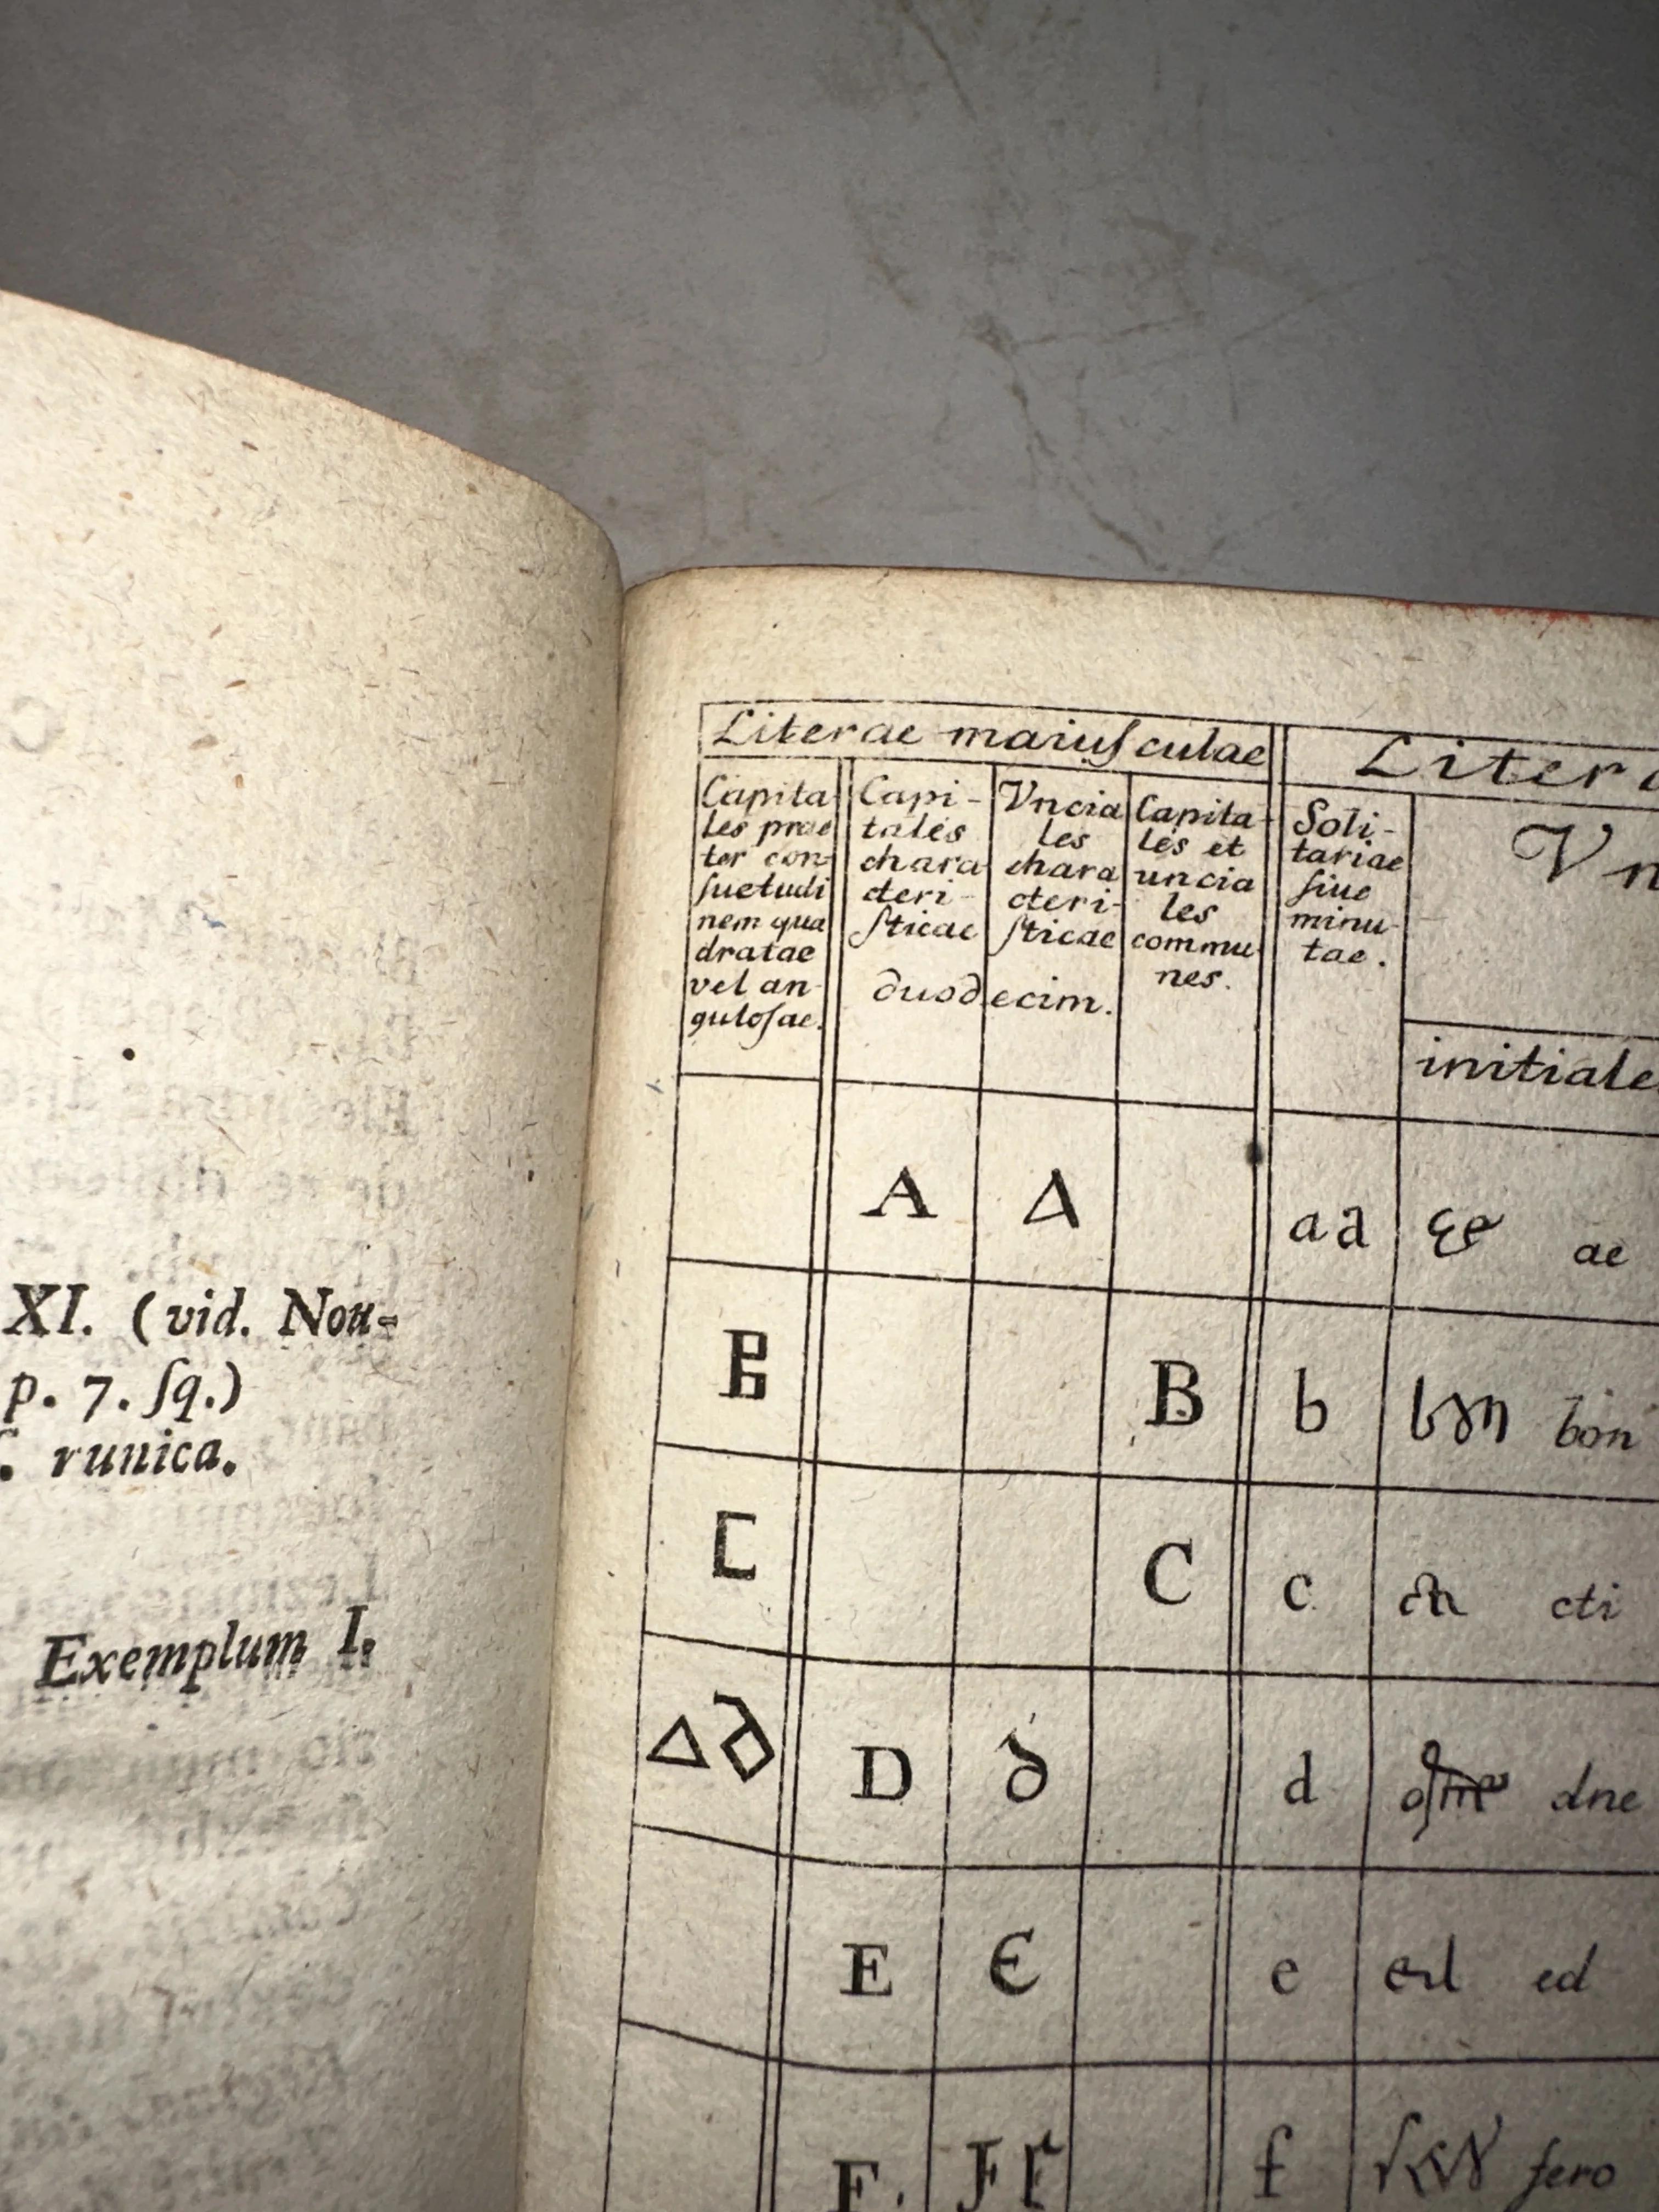 XI. (vid. Nou-
p. 7. ſq.)
. runica.
Exemplum I.
Literae maiuſculae
Liter
Capita-
les prae
ter con-
ſuetudi
nem qua
dratae
vel an-
guloſae.
Capi-
tales
chara
cteri-
ſticae
Vncia
les
chara
cteri-
ſticae
duodecim.
Capita-
les et
uncia
les
commu
nes.
Soli-
tariae
ſiue
minu-
tae.
Vn
initiale
A Δ a a ae
B B b bon
C C c cti
Δ D d dne
E Є e ed
F. f fero